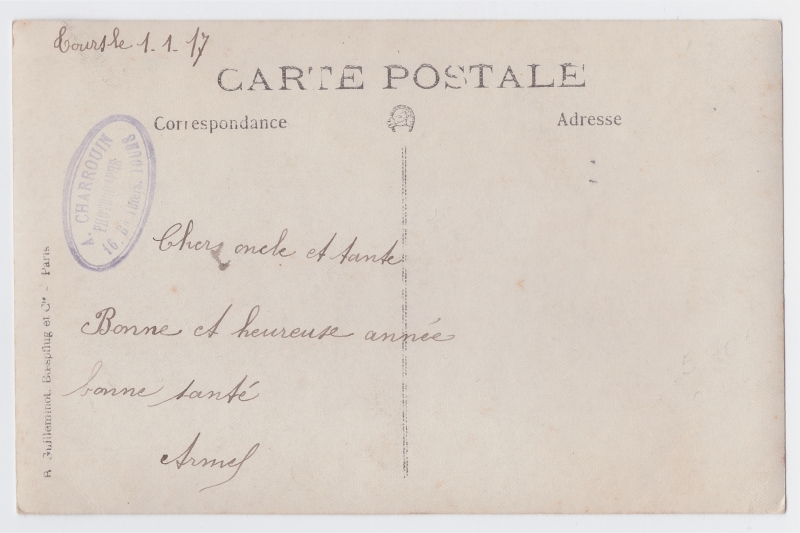 Tours le 1-1-17
CARTE POSTALE
Correspondance
Adresse
A. CHARROUIN
PHOTOGRAPHE
16. TOURS
Chers oncle et tante
Bonne et heureuse année
bonne santé
Armel
R. Guilleminot, Bœspflug et Cie - Paris